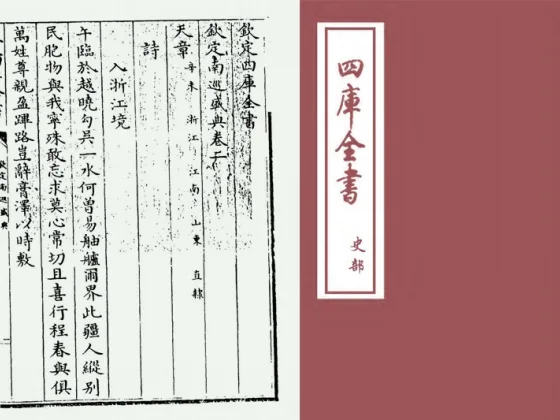 欽定四庫全書
欽定南巡盛典卷二
天章 辛未 浙江 江南 山東 直隸
詩
入浙江境
午臨於越曉勾吳一水何曾易舳艫爾界此疆人縱別
民胞物與我寧殊敢忘求莫心常切且喜行程春與俱
萬姓尊親盈蹕路豈辭膏澤以時敷
欽定南巡盛典
四庫全書
史部